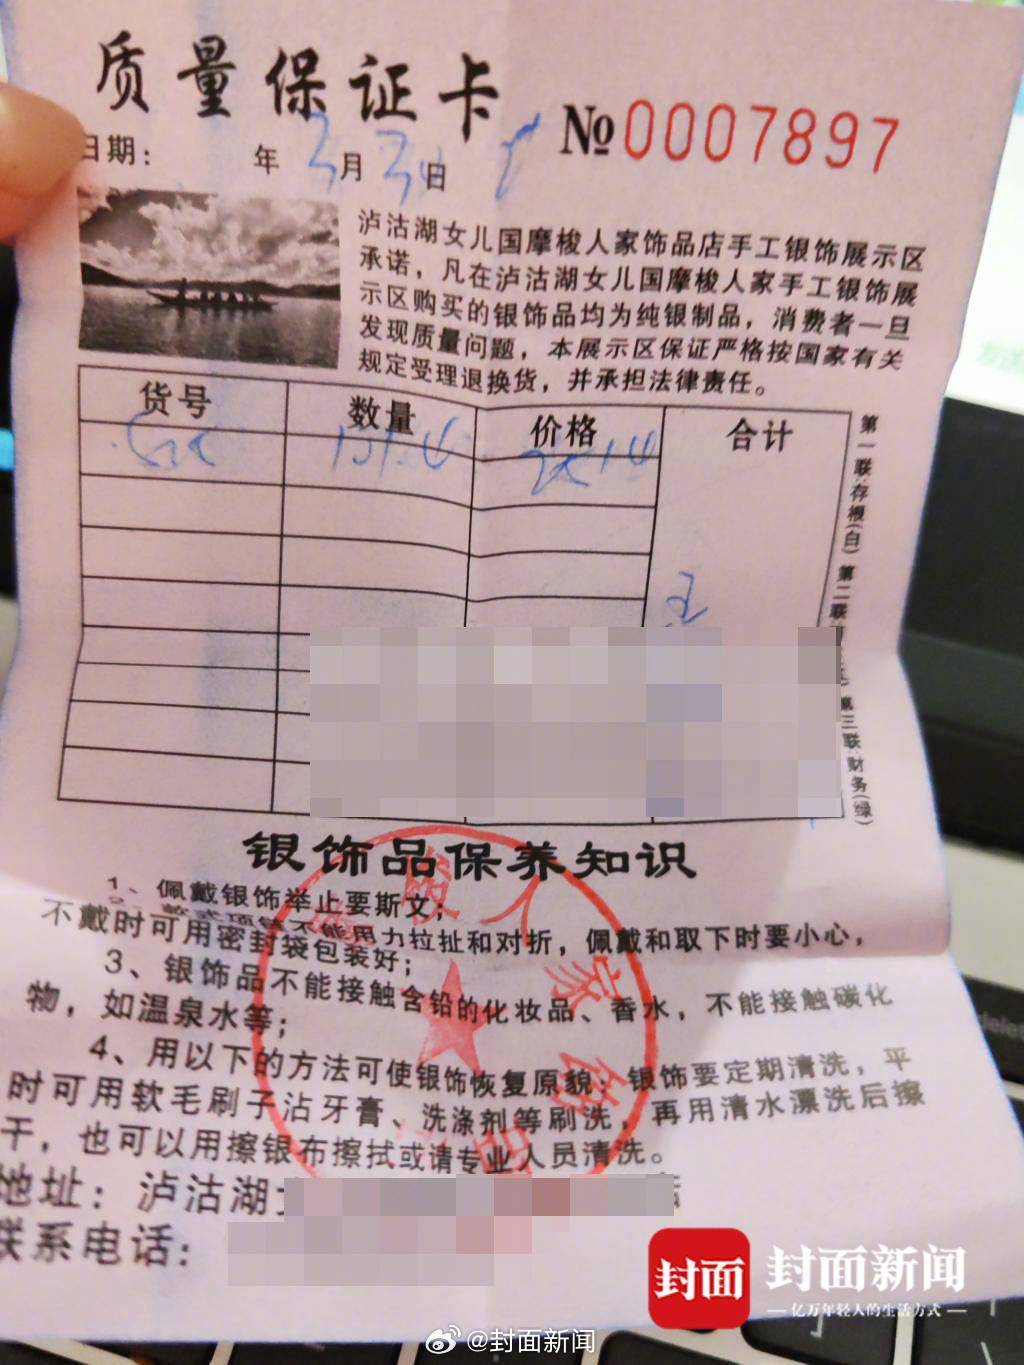 质量保证卡
№0007897
日期： 年 3月 日
泸沽湖女儿国摩梭人家饰品店手工银饰展示区
承诺，凡在泸沽湖女儿国摩梭人家手工银饰展
示区购买的银饰品均为纯银制品，消费者一旦
发现质量问题，本展示区保证严格按国家有关
规定受理退换货，并承担法律责任。
货号 数量 价格 合计
第一联:存根(白) 第二联 第三联 财务(绿)
银饰品保养知识
1、佩戴银饰举止要斯文；
2、款式项链不能用力拉扯和对折，佩戴和取下时要小心，
不戴时可用密封袋包装好；
3、银饰品不能接触含铅的化妆品、香水，不能接触碳化
物，如温泉水等；
4、用以下的方法可使银饰恢复原貌，银饰要定期清洗，平
时可用软毛刷子沾牙膏、洗涤剂等刷洗，再用清水漂洗后擦
干，也可以用擦银布擦拭或请专业人员清洗。
梭人家饰
地址：泸沽湖
联系电话：
delete
封面 封面新闻
亿万年轻人的生活方式
@封面新闻